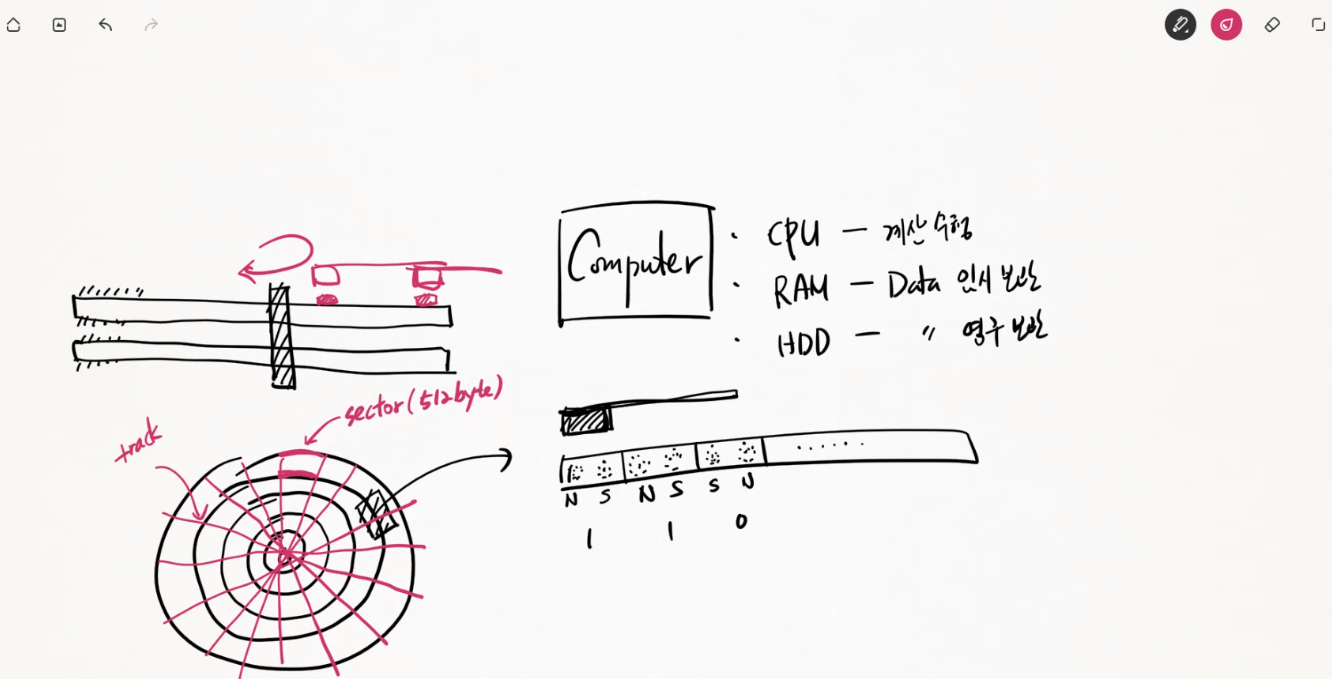 Computer
· CPU — 계산 수행
· RAM — Data 임시 보관
· HDD — 〃 영구 보관
sector(512byte)
track
N S N S S N
1 1 0